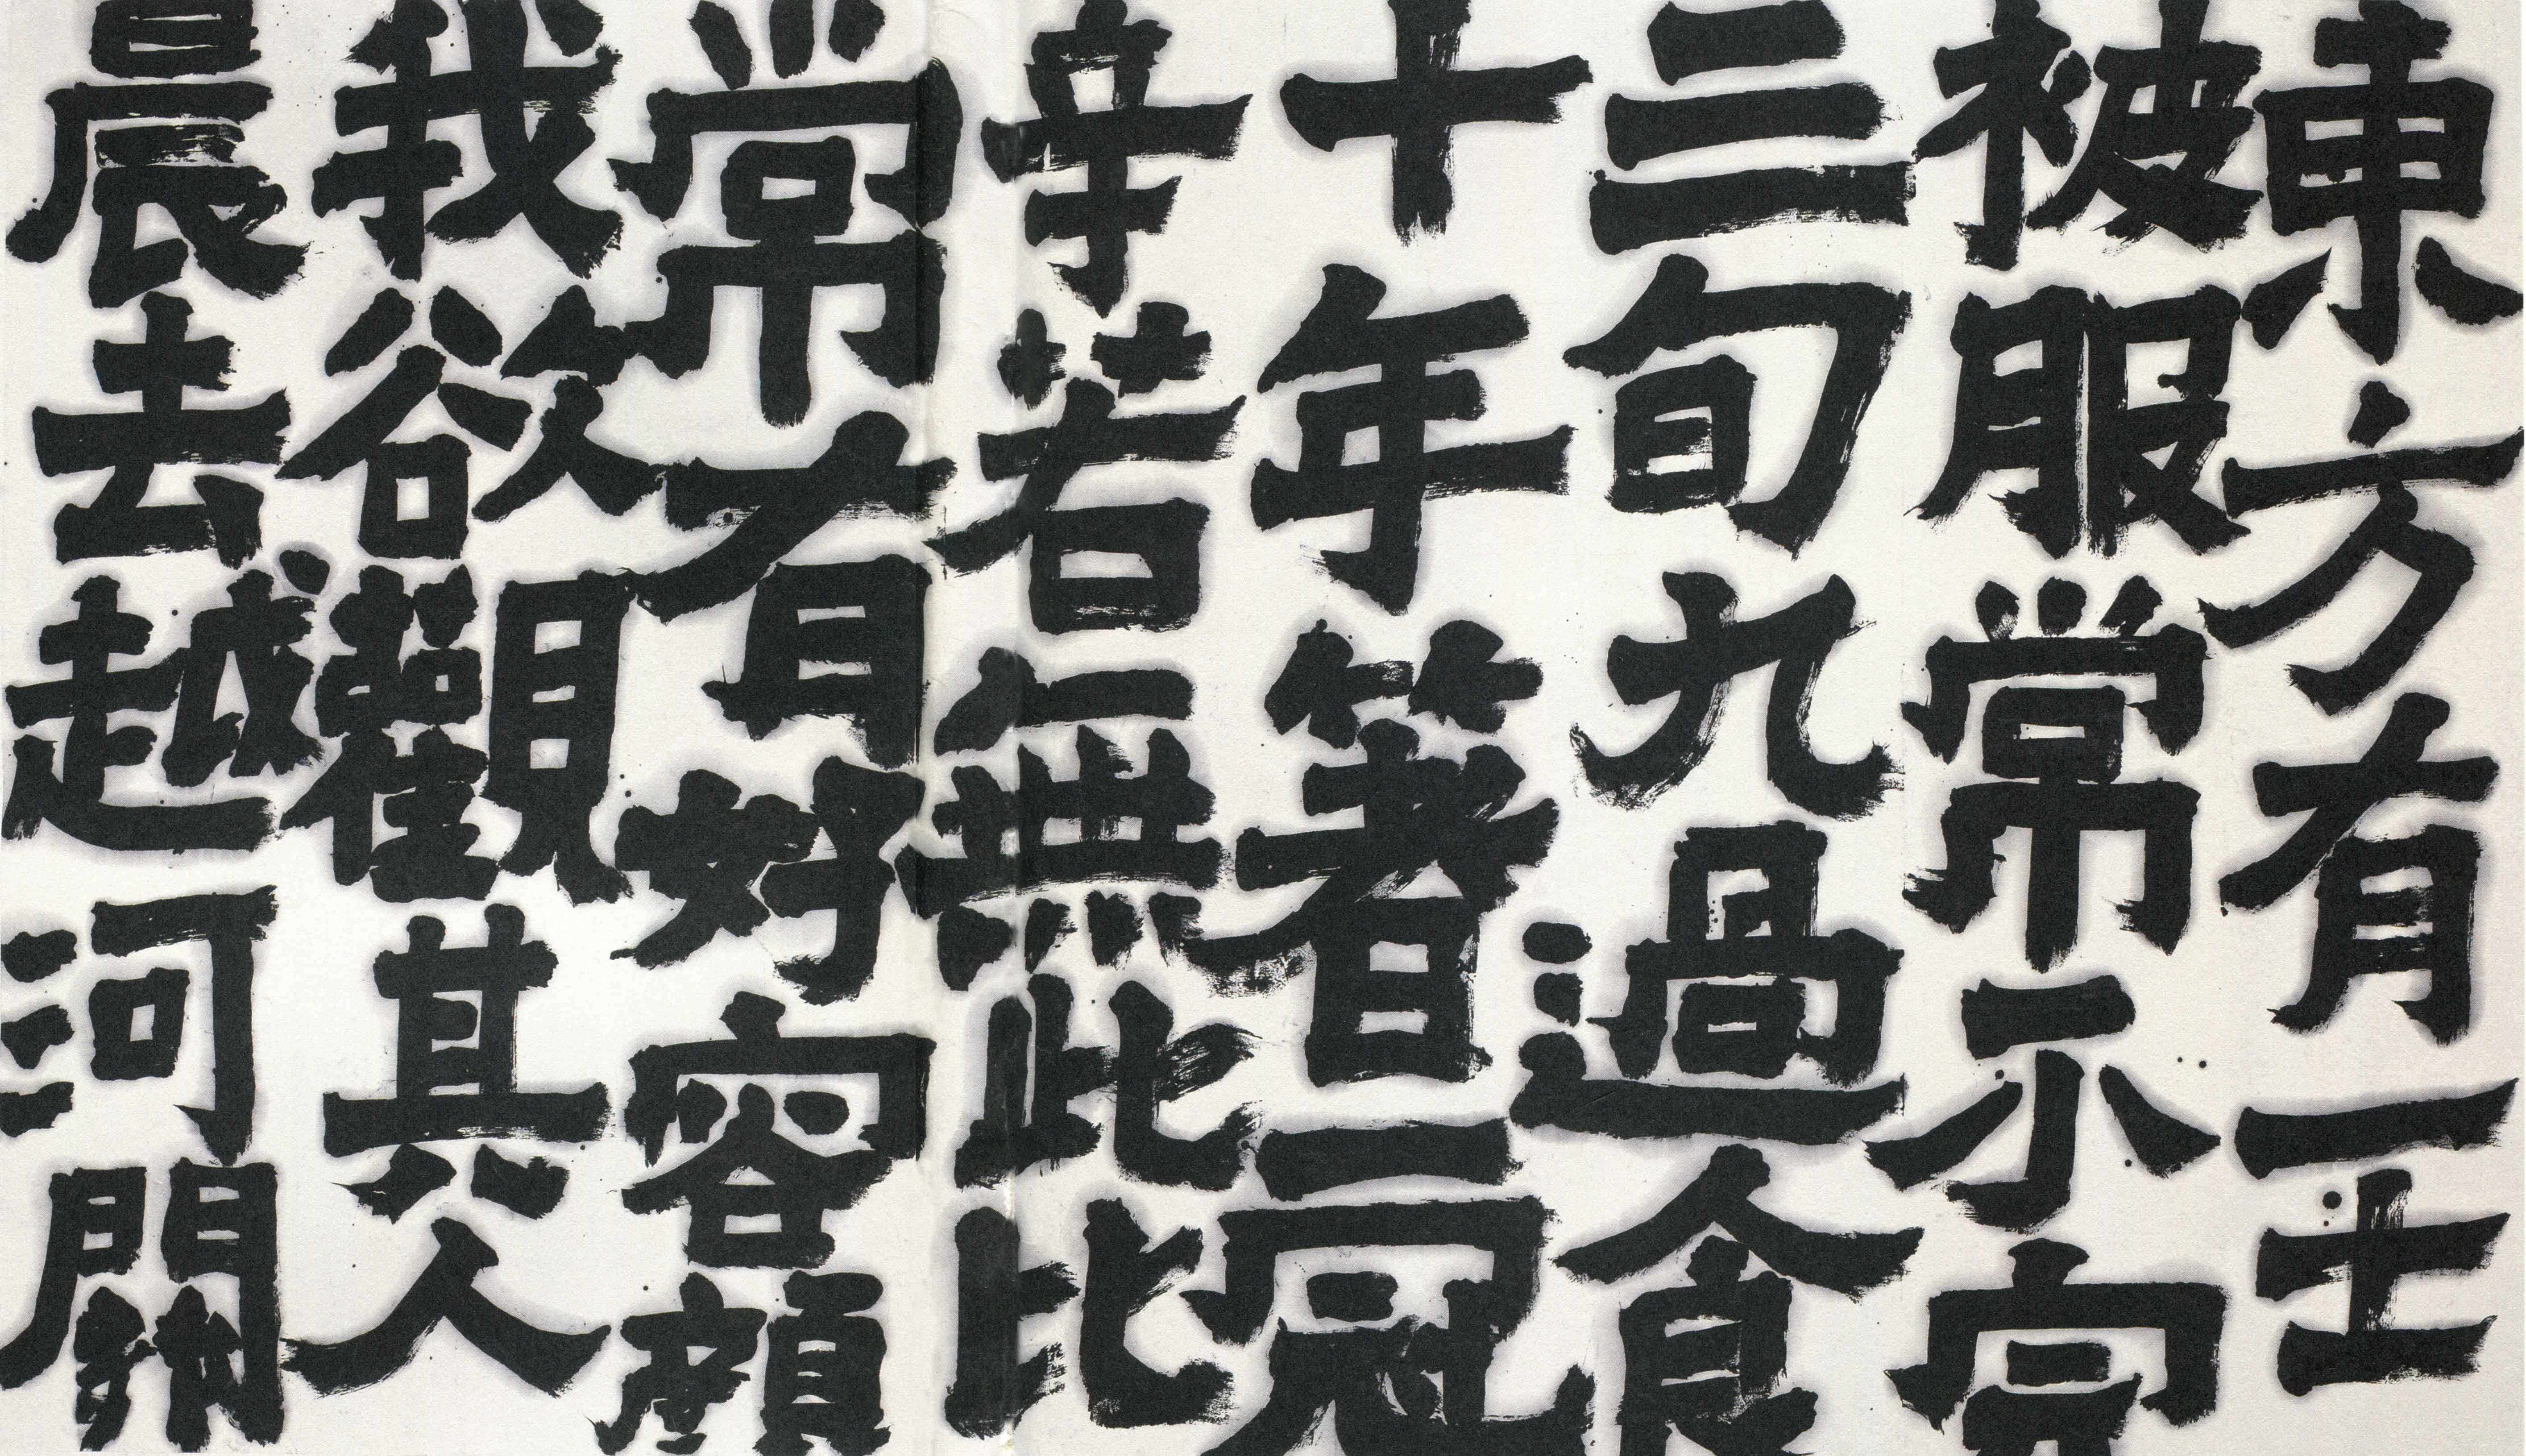 東方有一士
被服常不完
三旬九過食
十年箸一冠
辛若無此比
常有好容顏
我欲觀其人
晨去越河關